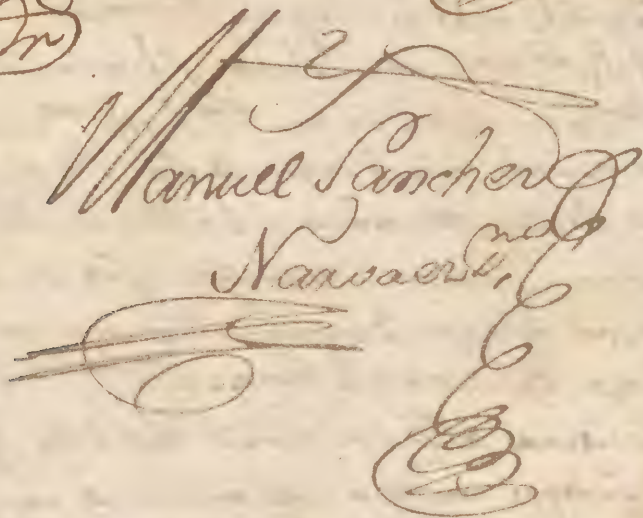 Manuel Sanchez
Narvaez